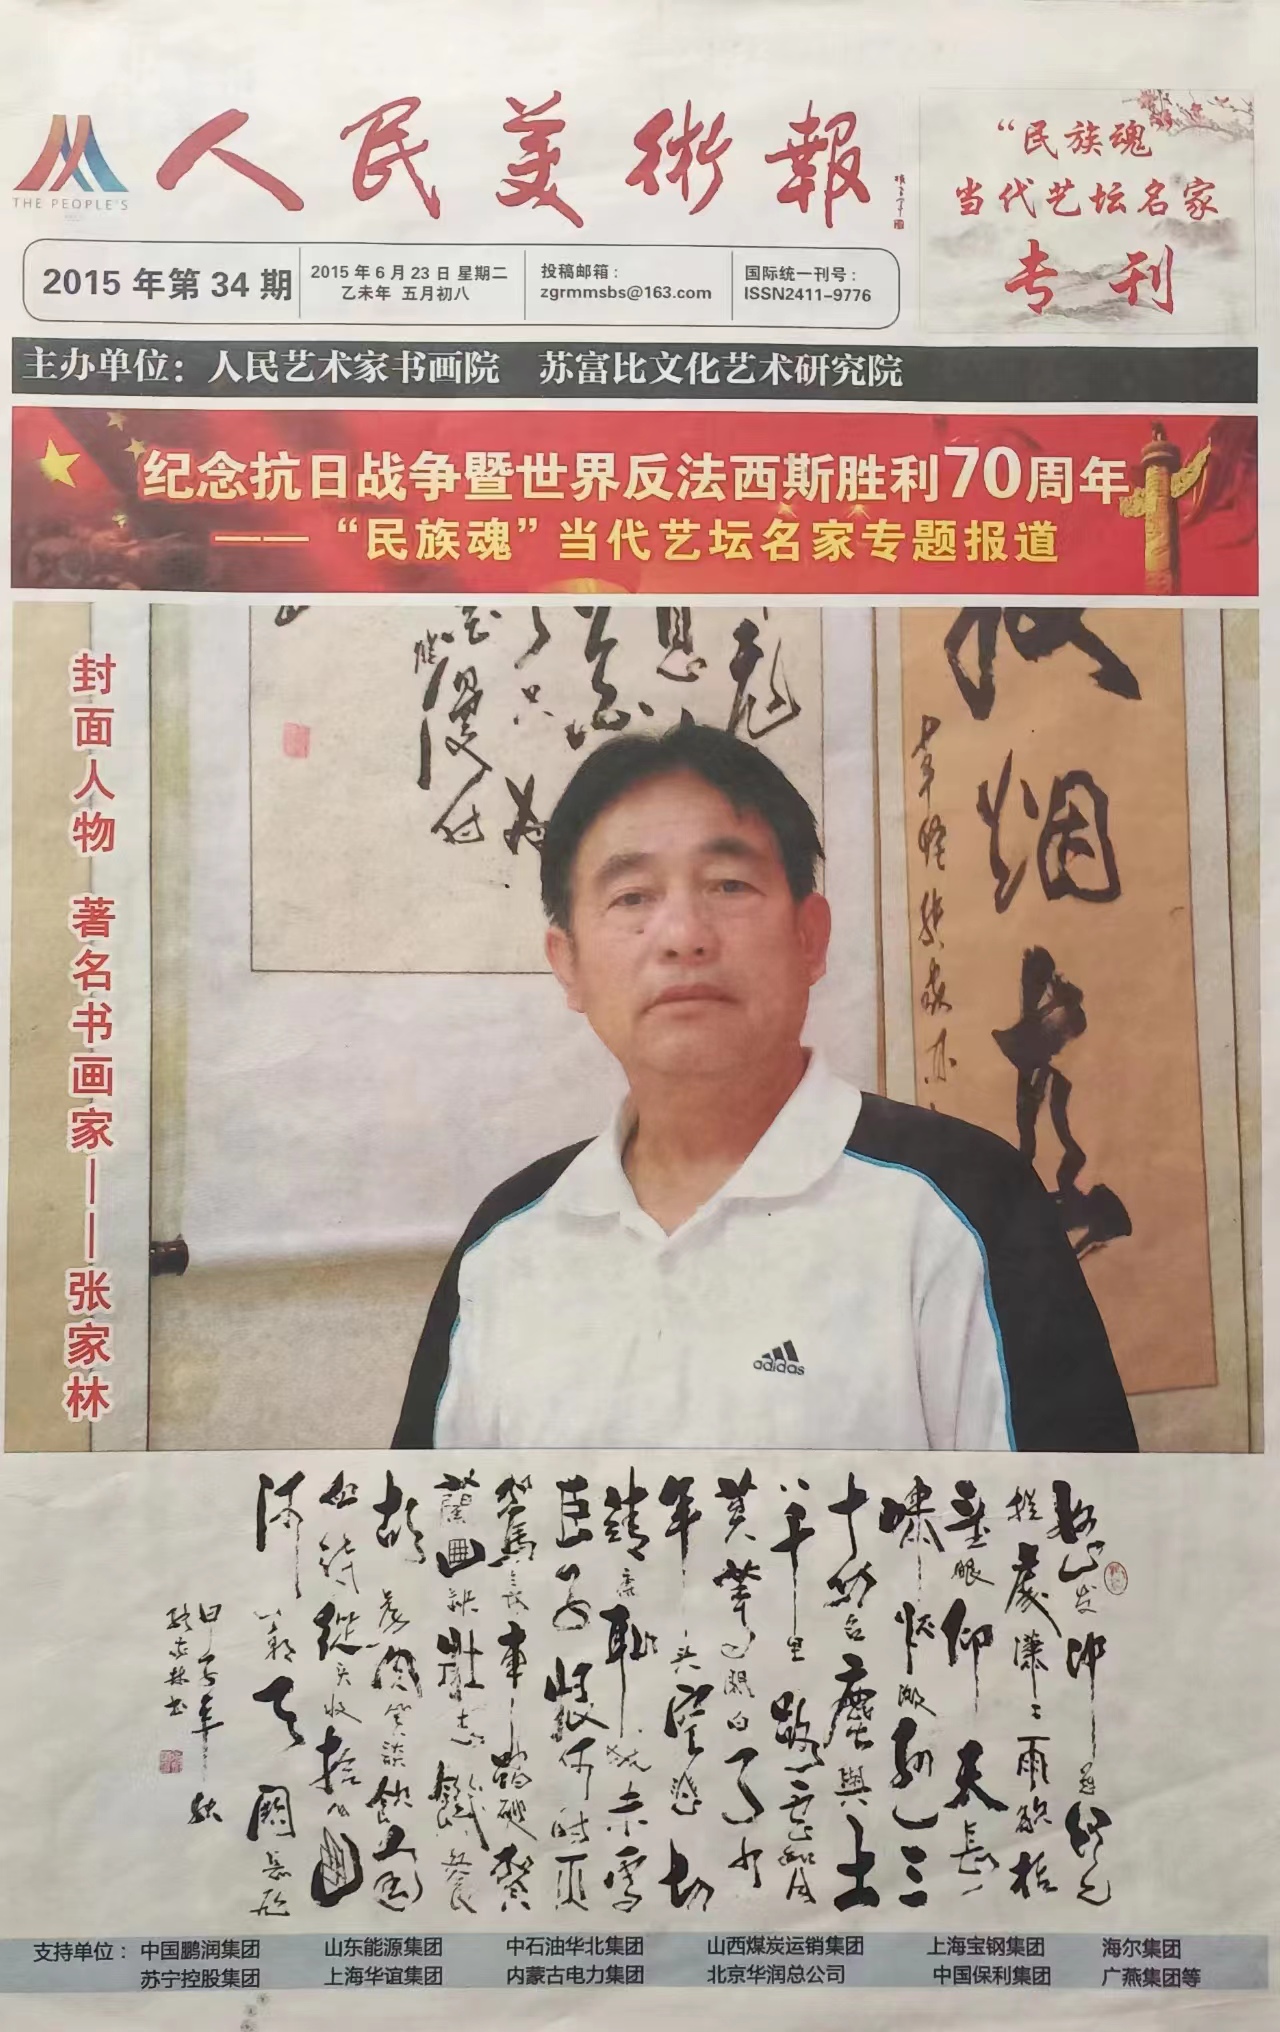 人民美術報
THE PEOPLE'S
“民族魂”
当代艺坛名家
专刊
2015 年第 34 期
2015 年 6 月 23 日 星期二
乙未年 五月初八
投稿邮箱：
zgrmmsbs@163.com
国际统一刊号：
ISSN2411-9776
主办单位：人民艺术家书画院 苏富比文化艺术研究院
纪念抗日战争暨世界反法西斯胜利70周年
——“民族魂”当代艺坛名家专题报道
封面人物 著名书画家——张家林
烟
adidas
怒发冲
處潇
雨歇 抬
望眼 仰天長
啸 怀 激烈 三
十 名 塵與土
八千里路雲和月
莫等 闲白了少
年 头 空悲切
靖康耻 犹未雪
臣子恨何时
駕長車 破賀
蘭 缺 壮志饑餐
胡虏肉笑談飲匈
血待從头收拾
河 天 闕
支持单位：中国鹏润集团 山东能源集团 中石油华北集团 山西煤炭运销集团 上海宝钢集团 海尔集团
苏宁控股集团 上海华谊集团 内蒙古电力集团 北京华润总公司 中国保利集团 广燕集团等